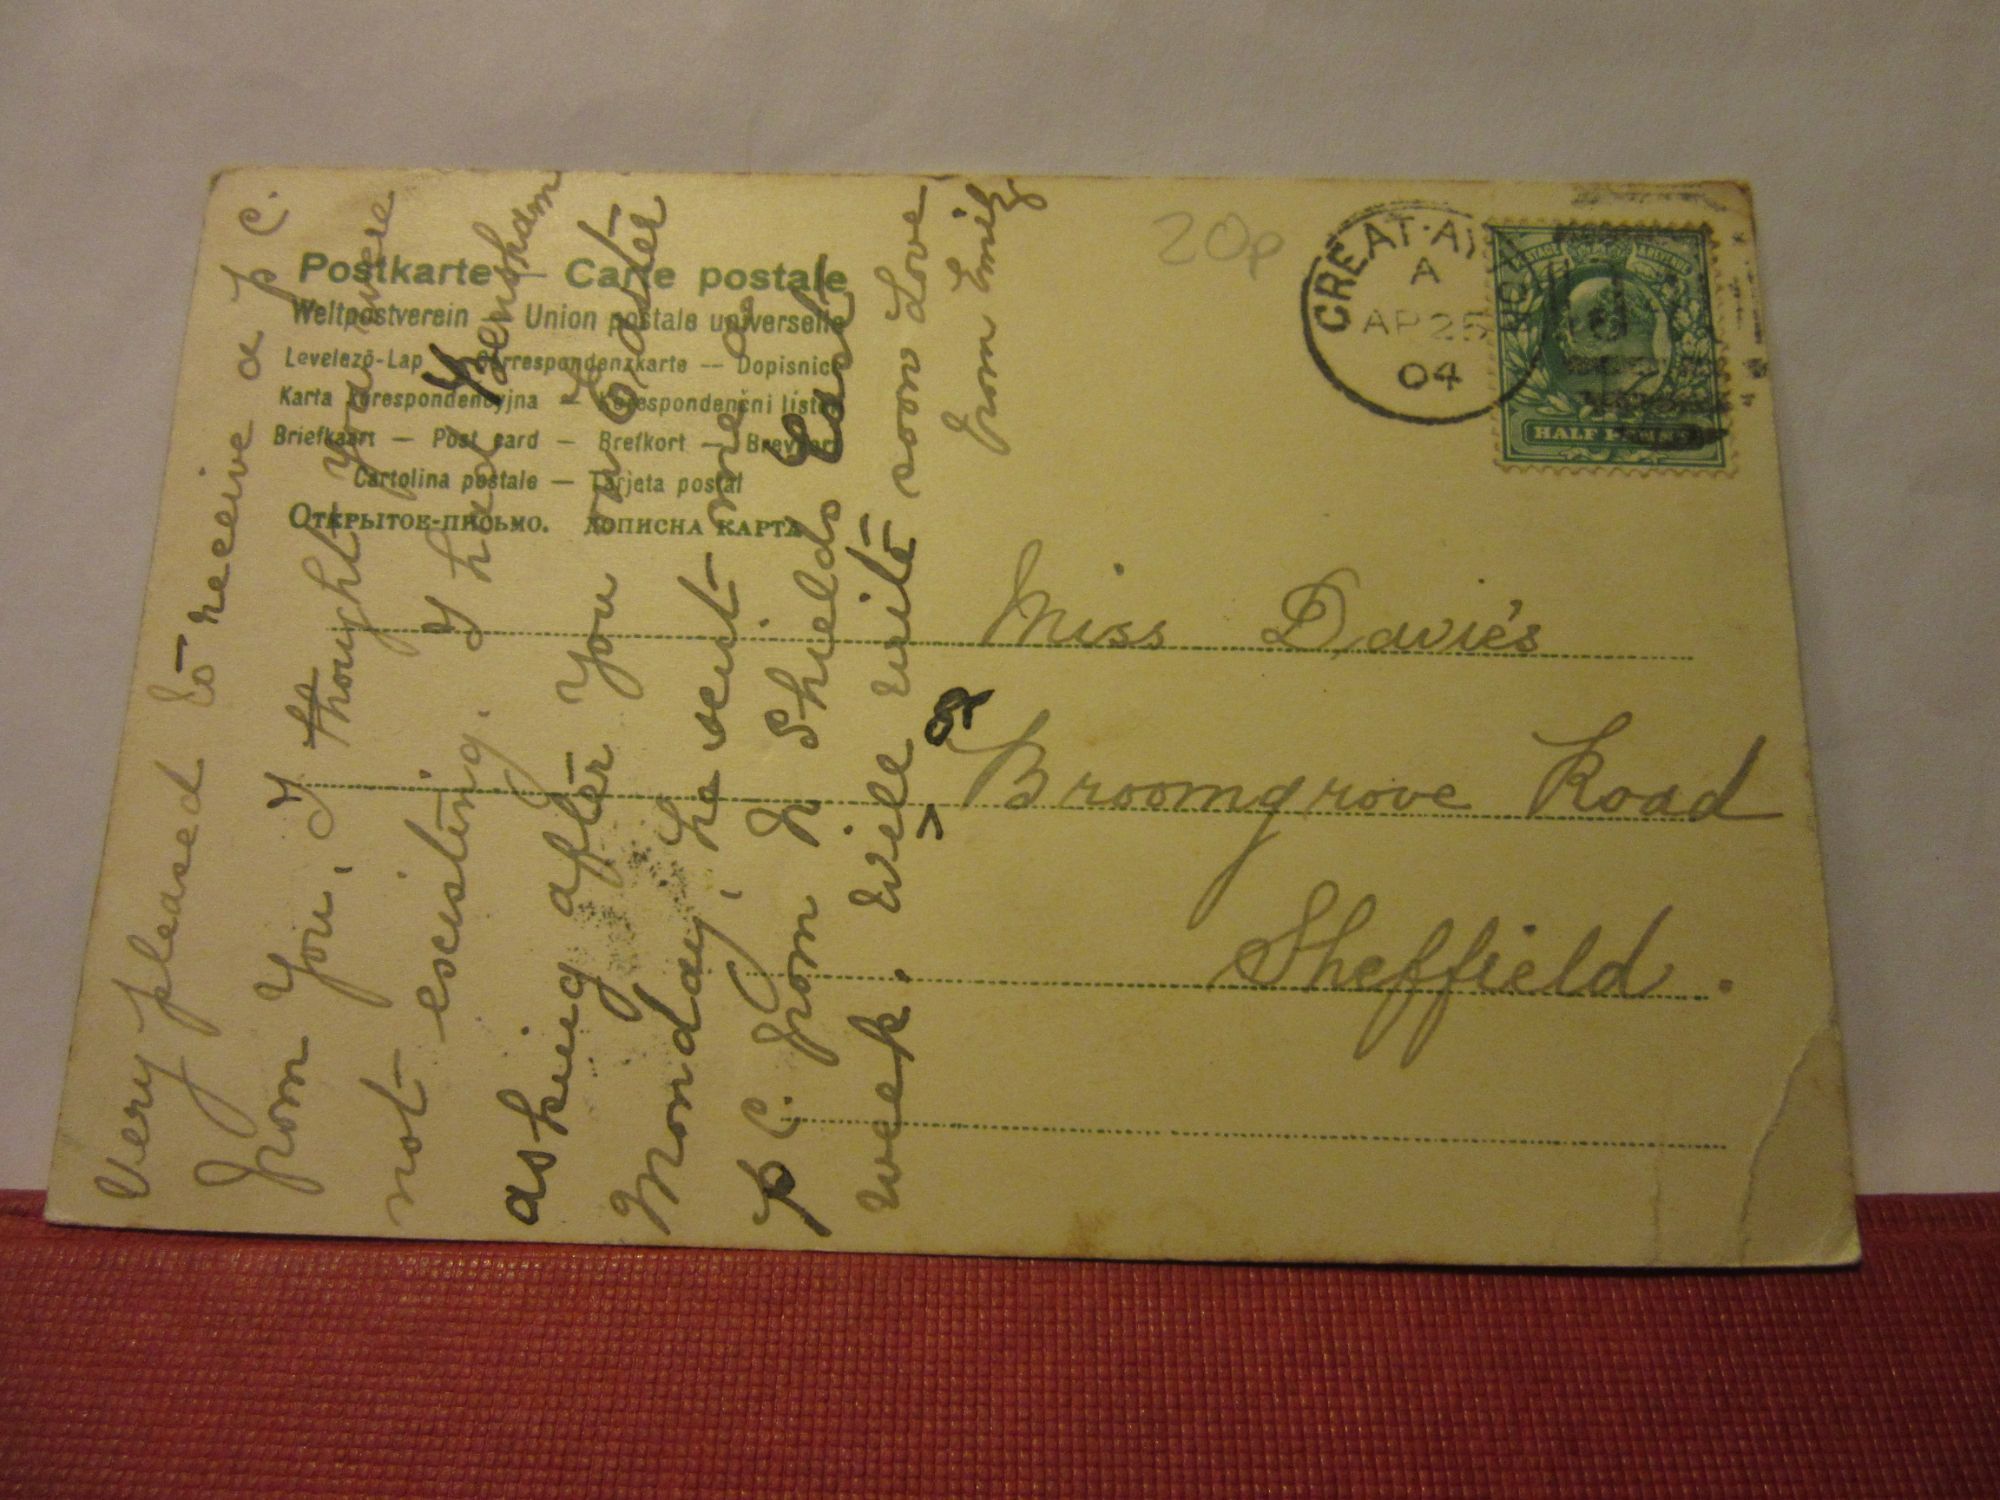 Postkarte — Carte postale
Weltpostverein — Union postale universelle
Levelezö-Lap — Correspondenzkarte — Dopisnice
Karta korespondencyjna — Korespondenčni listek
Briefkaart — Post card — Brefkort — Brevkort
Cartolina postale — Tarjeta postal
Открытое-письмо. Дописна карта
Very pleased to receive a p c.
from You, I thought you were
not existing. I had
asking after You on Easter
Monday, he sent me a
p c. from N Shields East
week. Will write soon Love
from Emily
20p
GREAT
A
AP 25
04
POSTAGE & REVENUE
HALF PENNY
Miss Davies
Broomgrove Road
Sheffield.